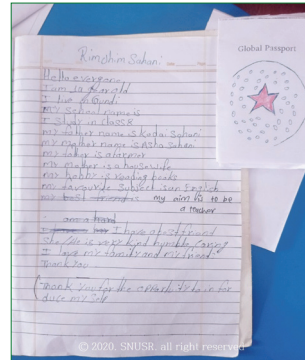 Rimjhim Sahani
Global Passport
Hello everyone
I am 14 years old
I live in Gundi
my school name is
I study in class 8
my father name is Kedai Sahani
my mother name is Asha Sahani
my father is a farmer
my mother is a housewife
my hobby is reading books
my favourite subject is an English
my aim is to be
a teacher
I have a best friend
She/He is very kind humble, caring
I love my family and my friend.
Thank you
Thank you for the opportunity to intro
duce my self
© 2020. SNUSR. all right reserved